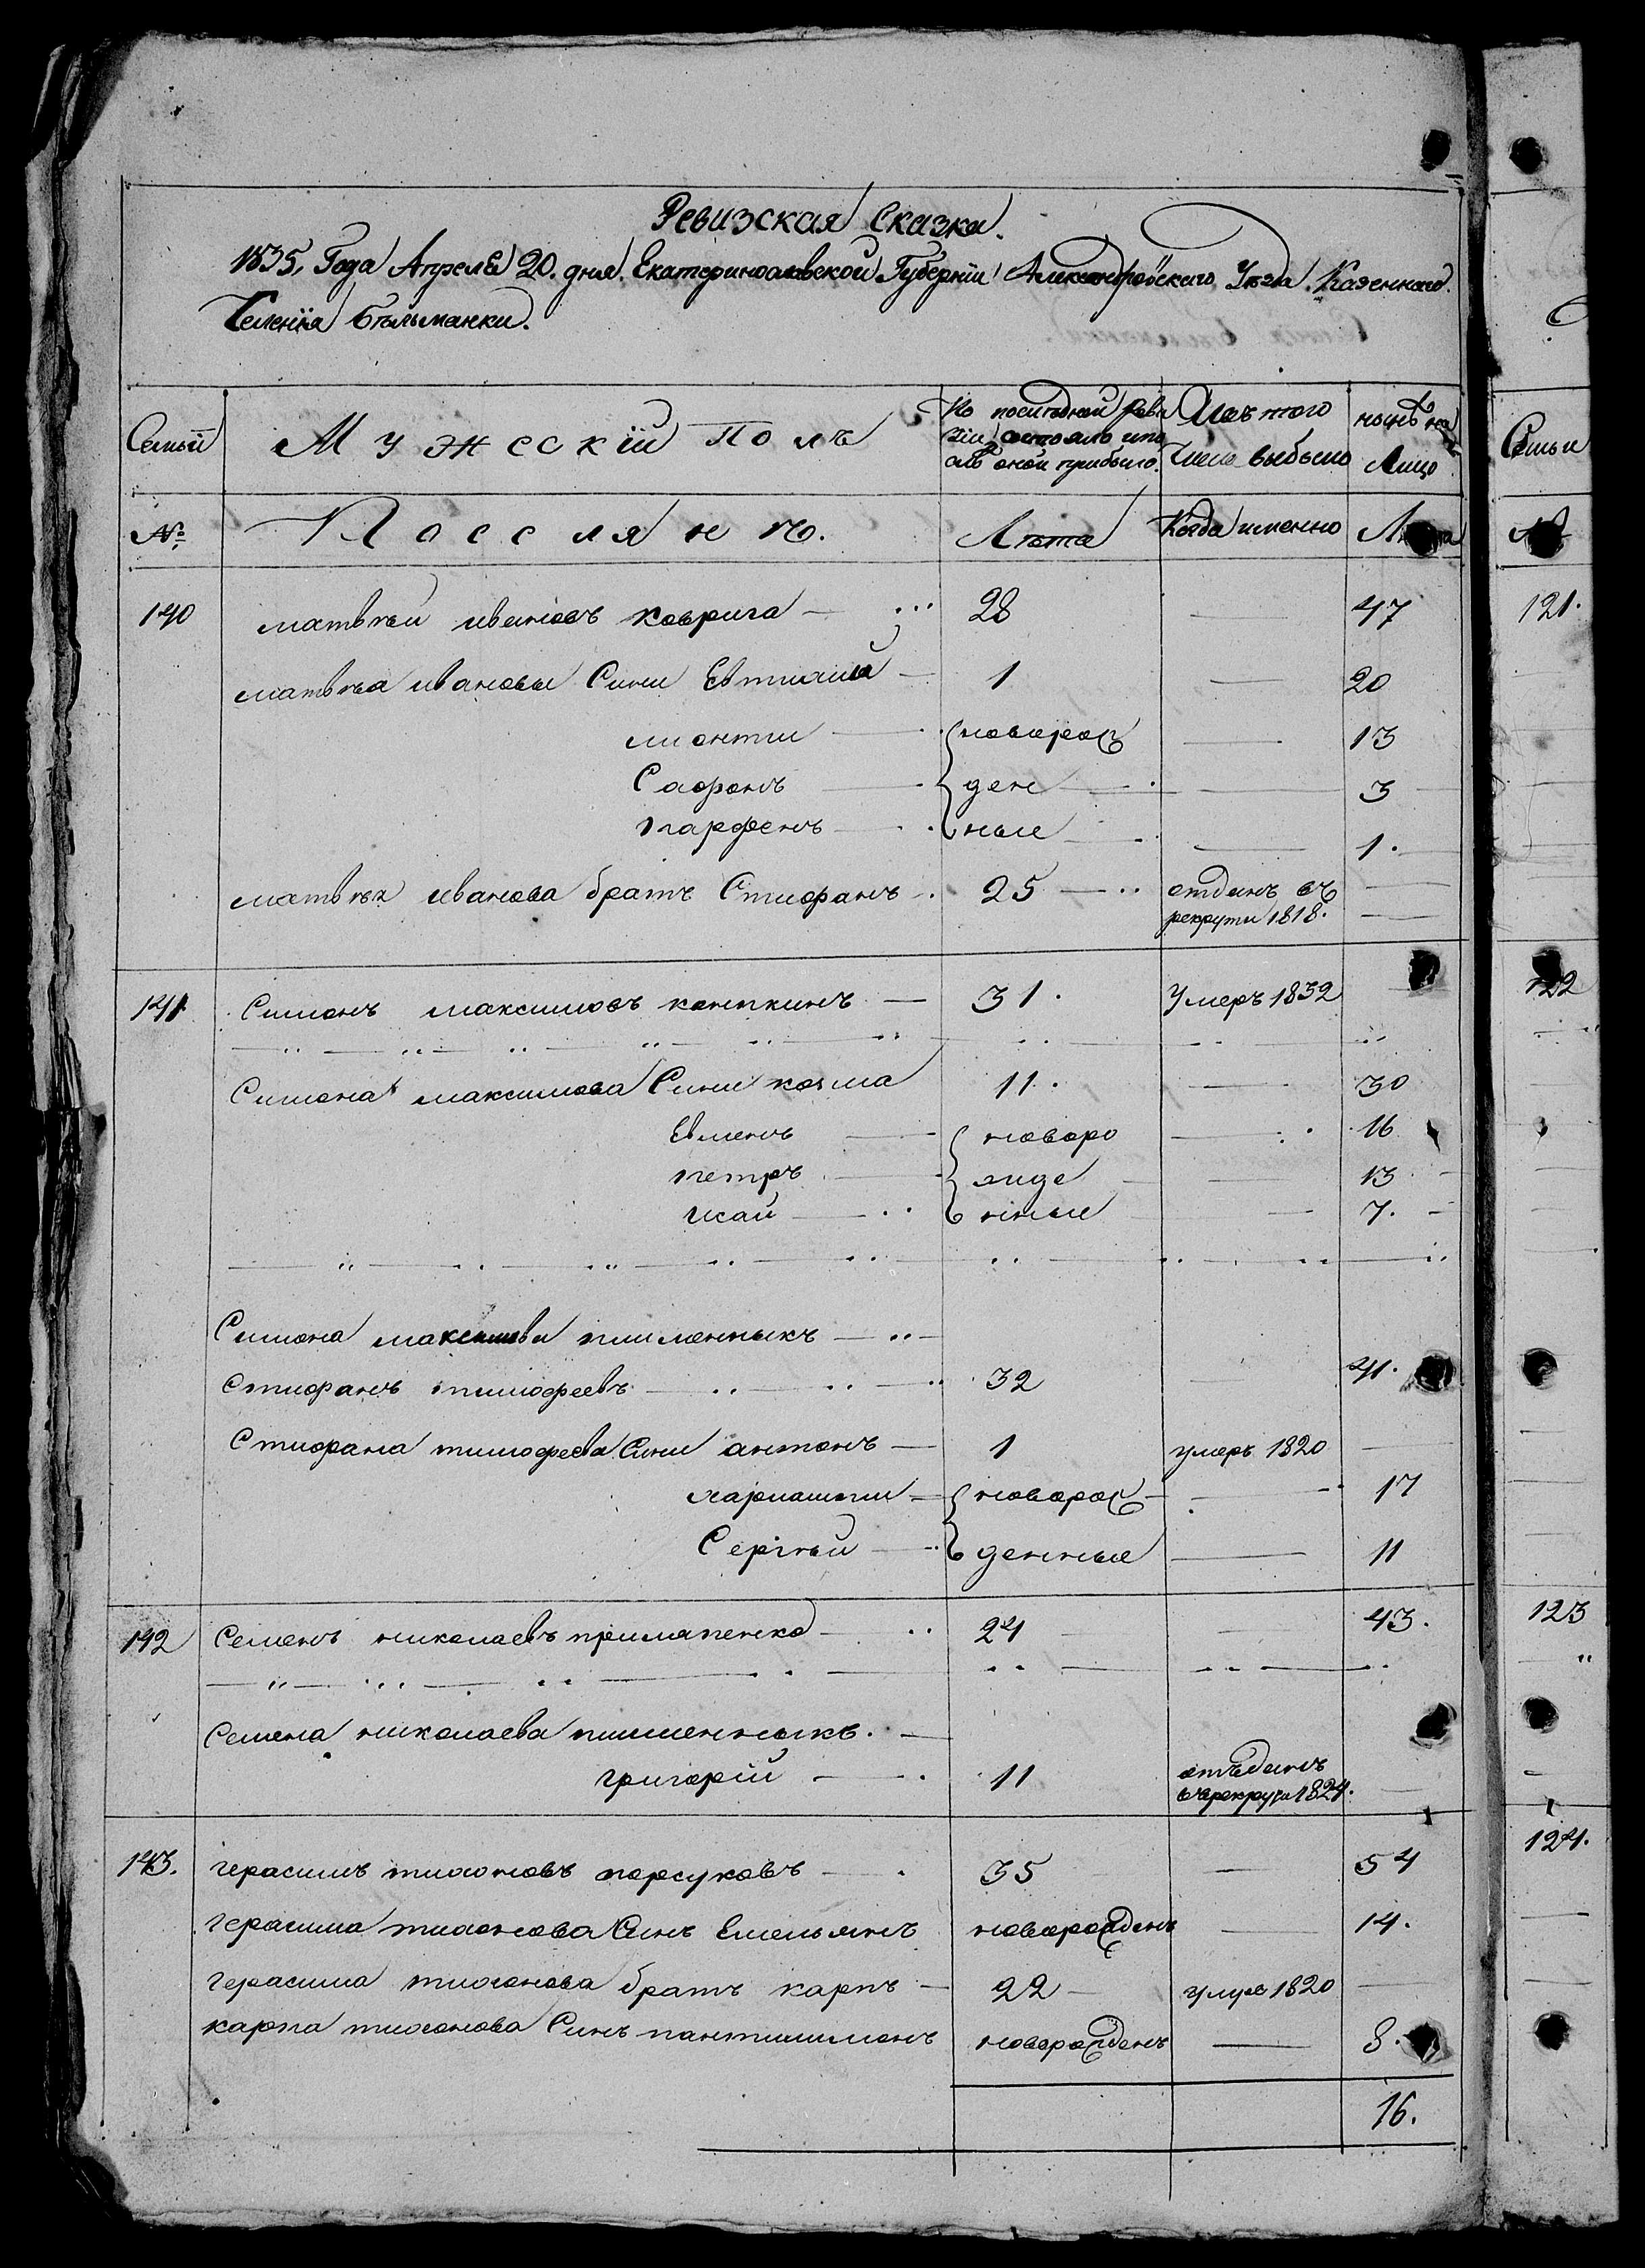 Ревизская Сказка.
1835, Года Апреля 20. дня. Екатеринославской Губернїи Александровскаго Уѣзда. Казеннаго.
Селенїя Бѣльманки.
Семьи Мужескїй Полъ По последней реви Изъ того нынѣ на Семьи
зіи состояло ипо
слѣ оной прибыло. Числа выбыло Лицо
№ Поселянъ. Лѣта Когда именно Лѣта №
140 матвѣй ивановъ коврига 28 47 121.
матвѣя иванова Сини Евтихий 1 20
лионтии новорож 13
Сафонъ ден 3
парфенъ ные 1.
матвѣя иванова братъ Стифанъ 25 отданъ въ
рекрути 1818.
141 Симонъ максимовъ конткинъ 31. Умеръ 1832 122
Симона максимова Сини козма 11. 30
Евменъ новоро 16
петръ жде 13
исай нные 7.
Симона максимова пишменныкъ
Стифанъ тимофеевъ 32 41.
Стифана тимофеева Сини антонъ 1 умеръ 1820
новорож 17
Сергѣй денные 11
142 Семенъ николаевъ примаченко 24 43. 123
Семена николаева пишменныкъ.
григорїй 11 отъданъ
въ рекрути 1824.
143. герасимъ тихоновъ порсуковъ 35 54 124.
герасима тихонова Синъ Емельянъ новорожденъ 14.
герасима тихонова братъ карпъ 22 умре 1820
карпа тихонова Синъ пантилимонъ новорожденъ 8.
16.